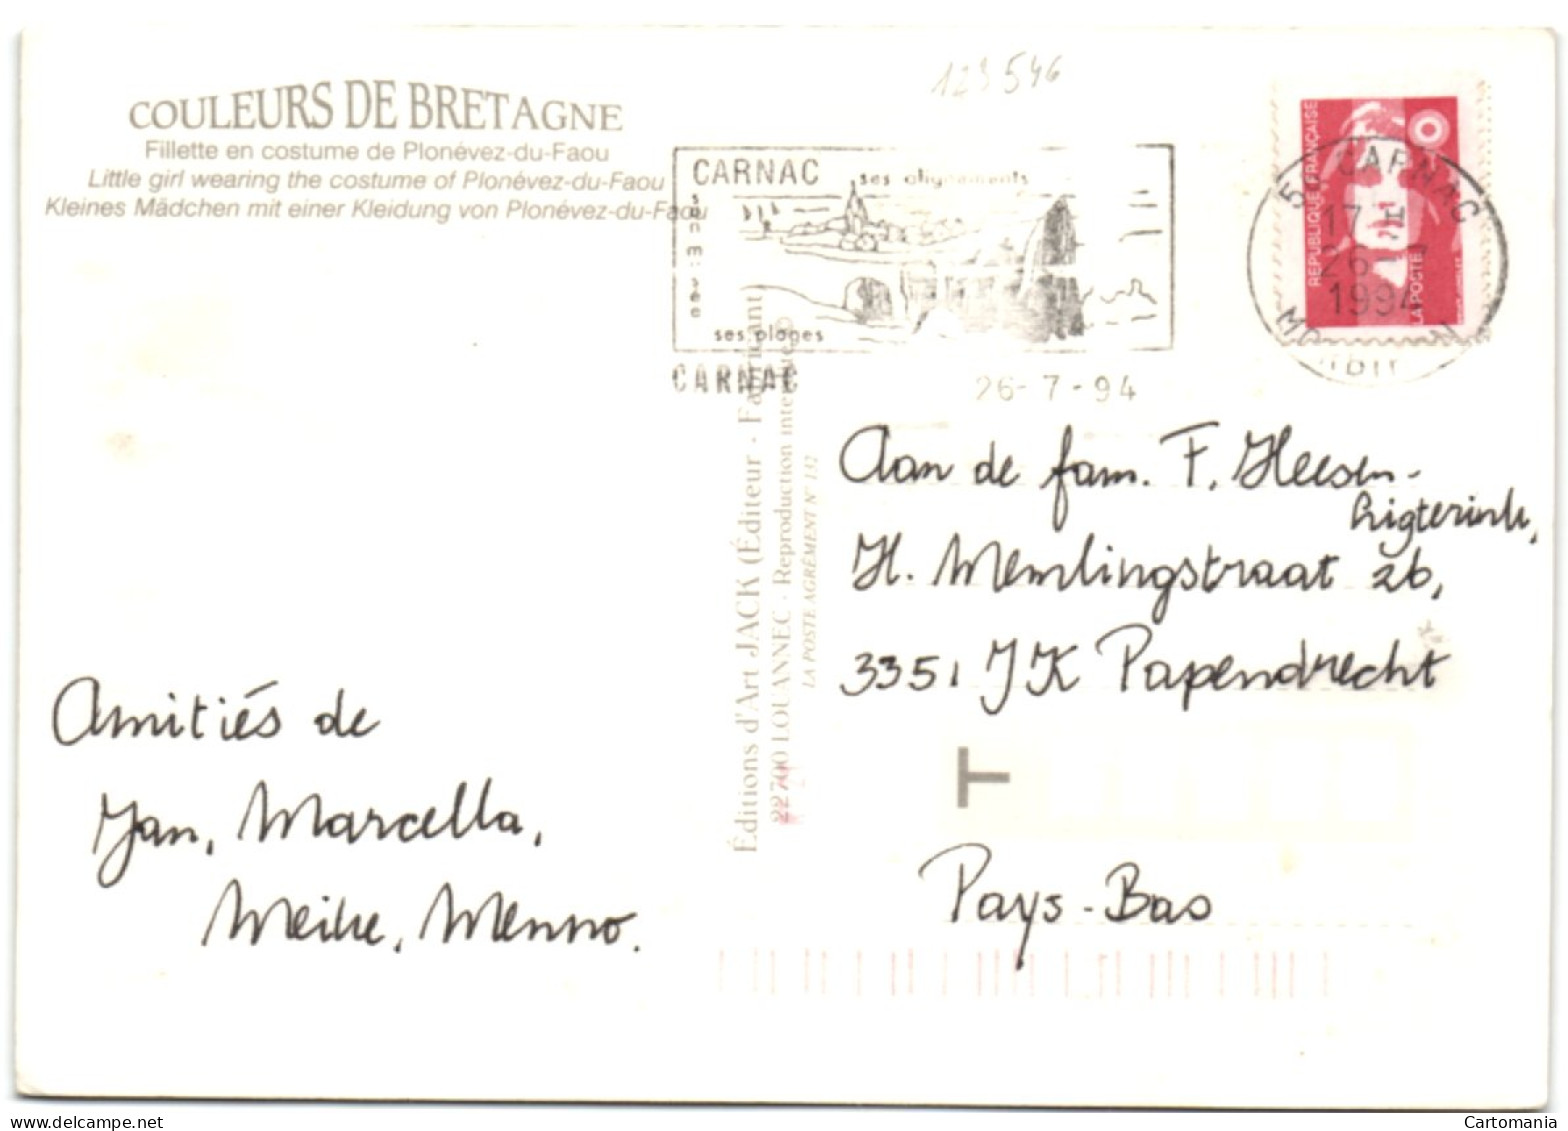 123546
COULEURS DE BRETAGNE
Fillette en costume de Plonévez-du-Faou
Little girl wearing the costume of Plonévez-du-Faou
Kleines Mädchen mit einer Kleidung von Plonévez-du-Faou
CARNAC
ses alignements
son musée
ses plages
CARNAC
26-7-94
RÉPUBLIQUE FRANÇAISE
LA POSTE
CARNAC
17 H
26-7
1994
Éditions d'Art JACK (Éditeur - Fabricant)
22700 LOUANNEC - Reproduction interdite ©
LA POSTE AGRÉMENT N° 132
Aan de fam. F. Heesen-
Ligterink,
H. Memlingstraat 26,
3351 JK Papendrecht
T
Pays-Bas
Amitiés de
Jan, Marcella,
Meike, Menno.
delcampe.net
Cartomania